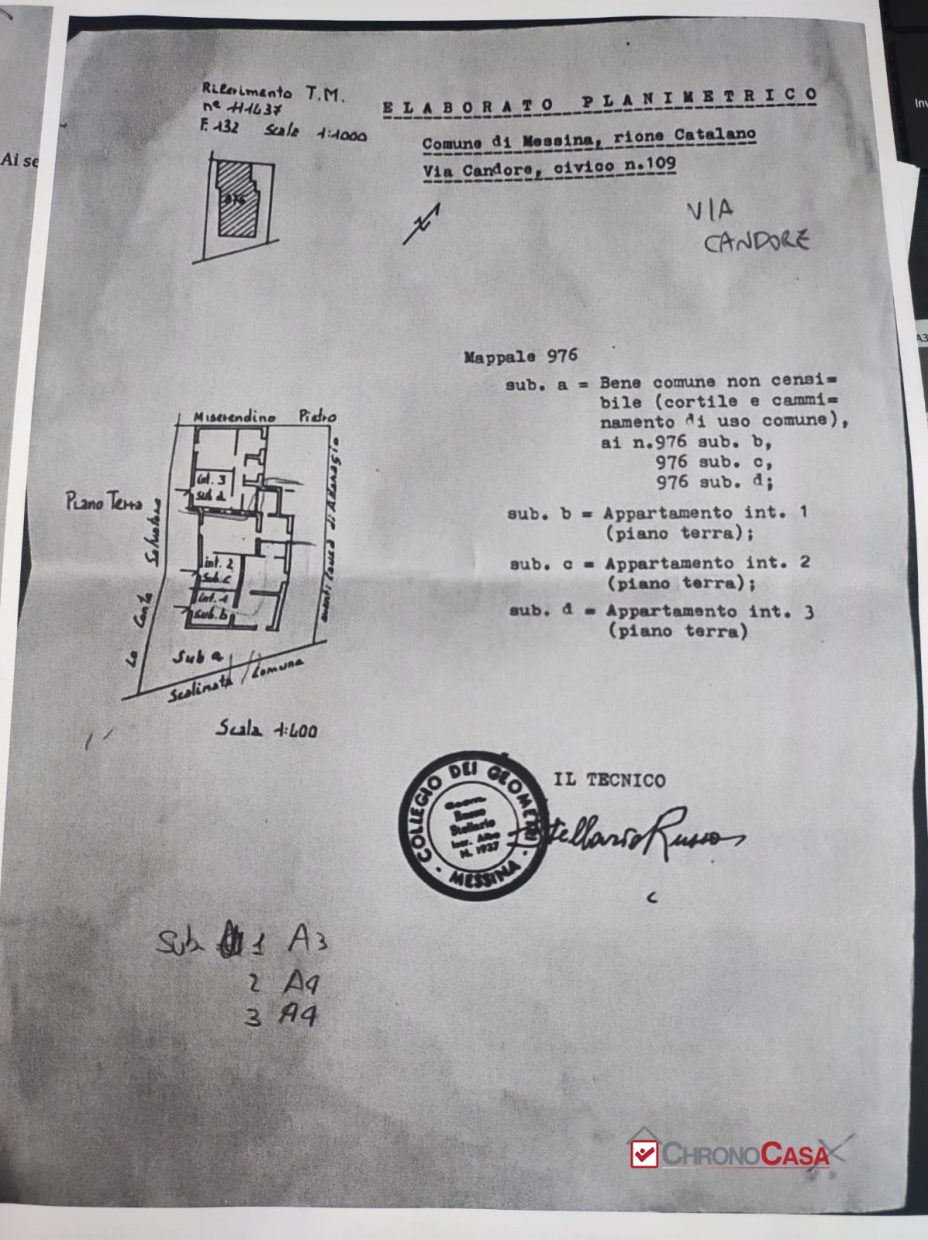 Riferimento T.M.
n° 11437
F. 132 Scala 1:1000
ELABORATO PLANIMETRICO
Comune di Messina, rione Catalano
Via Candore, civico n.109
976
VIA
CANDORE
Mappale 976
sub. a = Bene comune non censi=
bile (cortile e cammi=
namento di uso comune),
ai n.976 sub. b,
976 sub. c,
976 sub. d;
sub. b = Appartamento int. 1
(piano terra);
sub. c = Appartamento int. 2
(piano terra);
sub. d = Appartamento int. 3
(piano terra)
Miserendino Pietro
Piano Terra
int. 3
sub d
int. 2
sub. c
int. 1
sub. b
Lo Conte Salvatore
Sub a
Scalinata Comune
Scala 1:400
IL TECNICO
COLLEGIO DEI GEOMETRI
MESSINA
Geom.
Russo
Stellario
Iscr. Albo
N. 1937
Stellario Russo
Sub 1 A3
2 A4
3 A4
Ai se
Inv
A3
CHRONOCASA